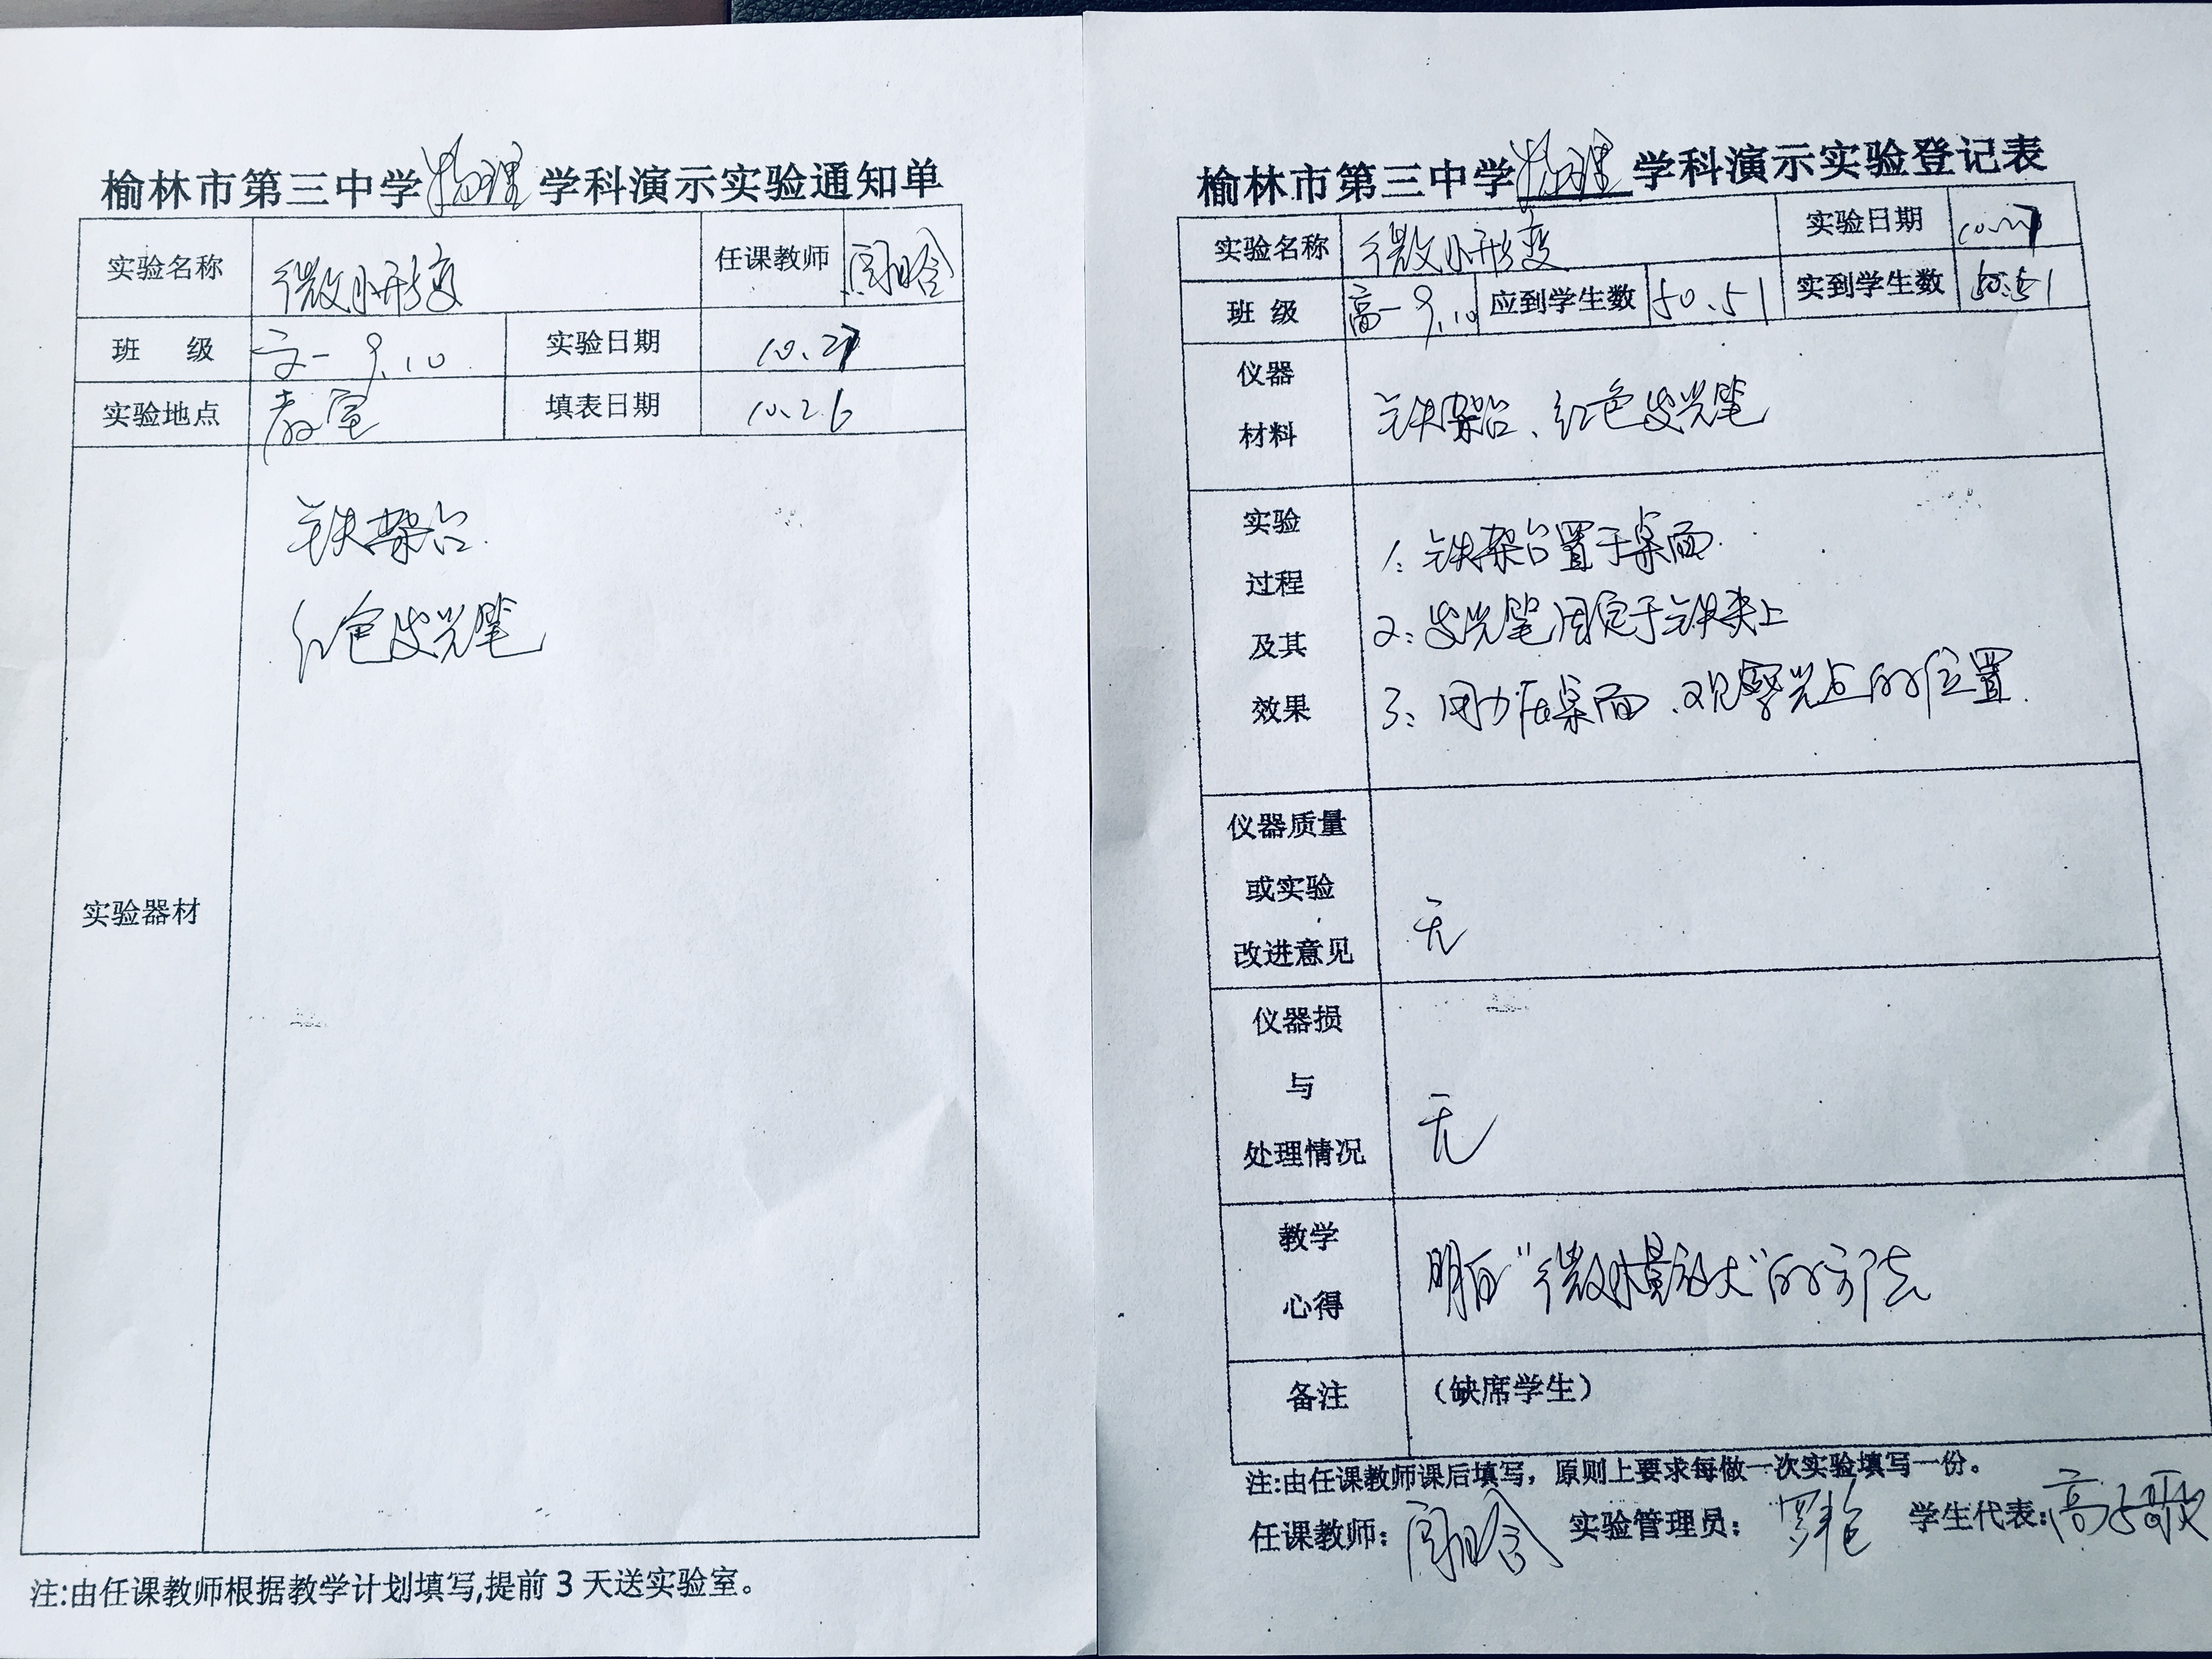 榆林市第三中学物理学科演示实验通知单
实验名称 微小形变 任课教师
班 级 高一 9、10 实验日期 10.27
实验地点 教室 填表日期 10.26
实验器材
铁架台
红色发光笔
注:由任课教师根据教学计划填写,提前3天送实验室。
榆林市第三中学物理学科演示实验登记表
实验名称 微小形变 实验日期 10.27
班 级 高一 9、10 应到学生数 50、51 实到学生数 50、51
仪器
材料
铁架台、红色发光笔
实验
过程
及其
效果
1: 铁架台置于桌面.
2: 发光笔固定于铁夹上
3: 用力压桌面、观察光点的位置.
仪器质量
或实验
改进意见
无
仪器损
与
处理情况
无
教学
心得
明白“微小量放大”的方法
备注 (缺席学生)
注:由任课教师课后填写，原则上要求每做一次实验填写一份。
任课教师: 实验管理员: 学生代表: